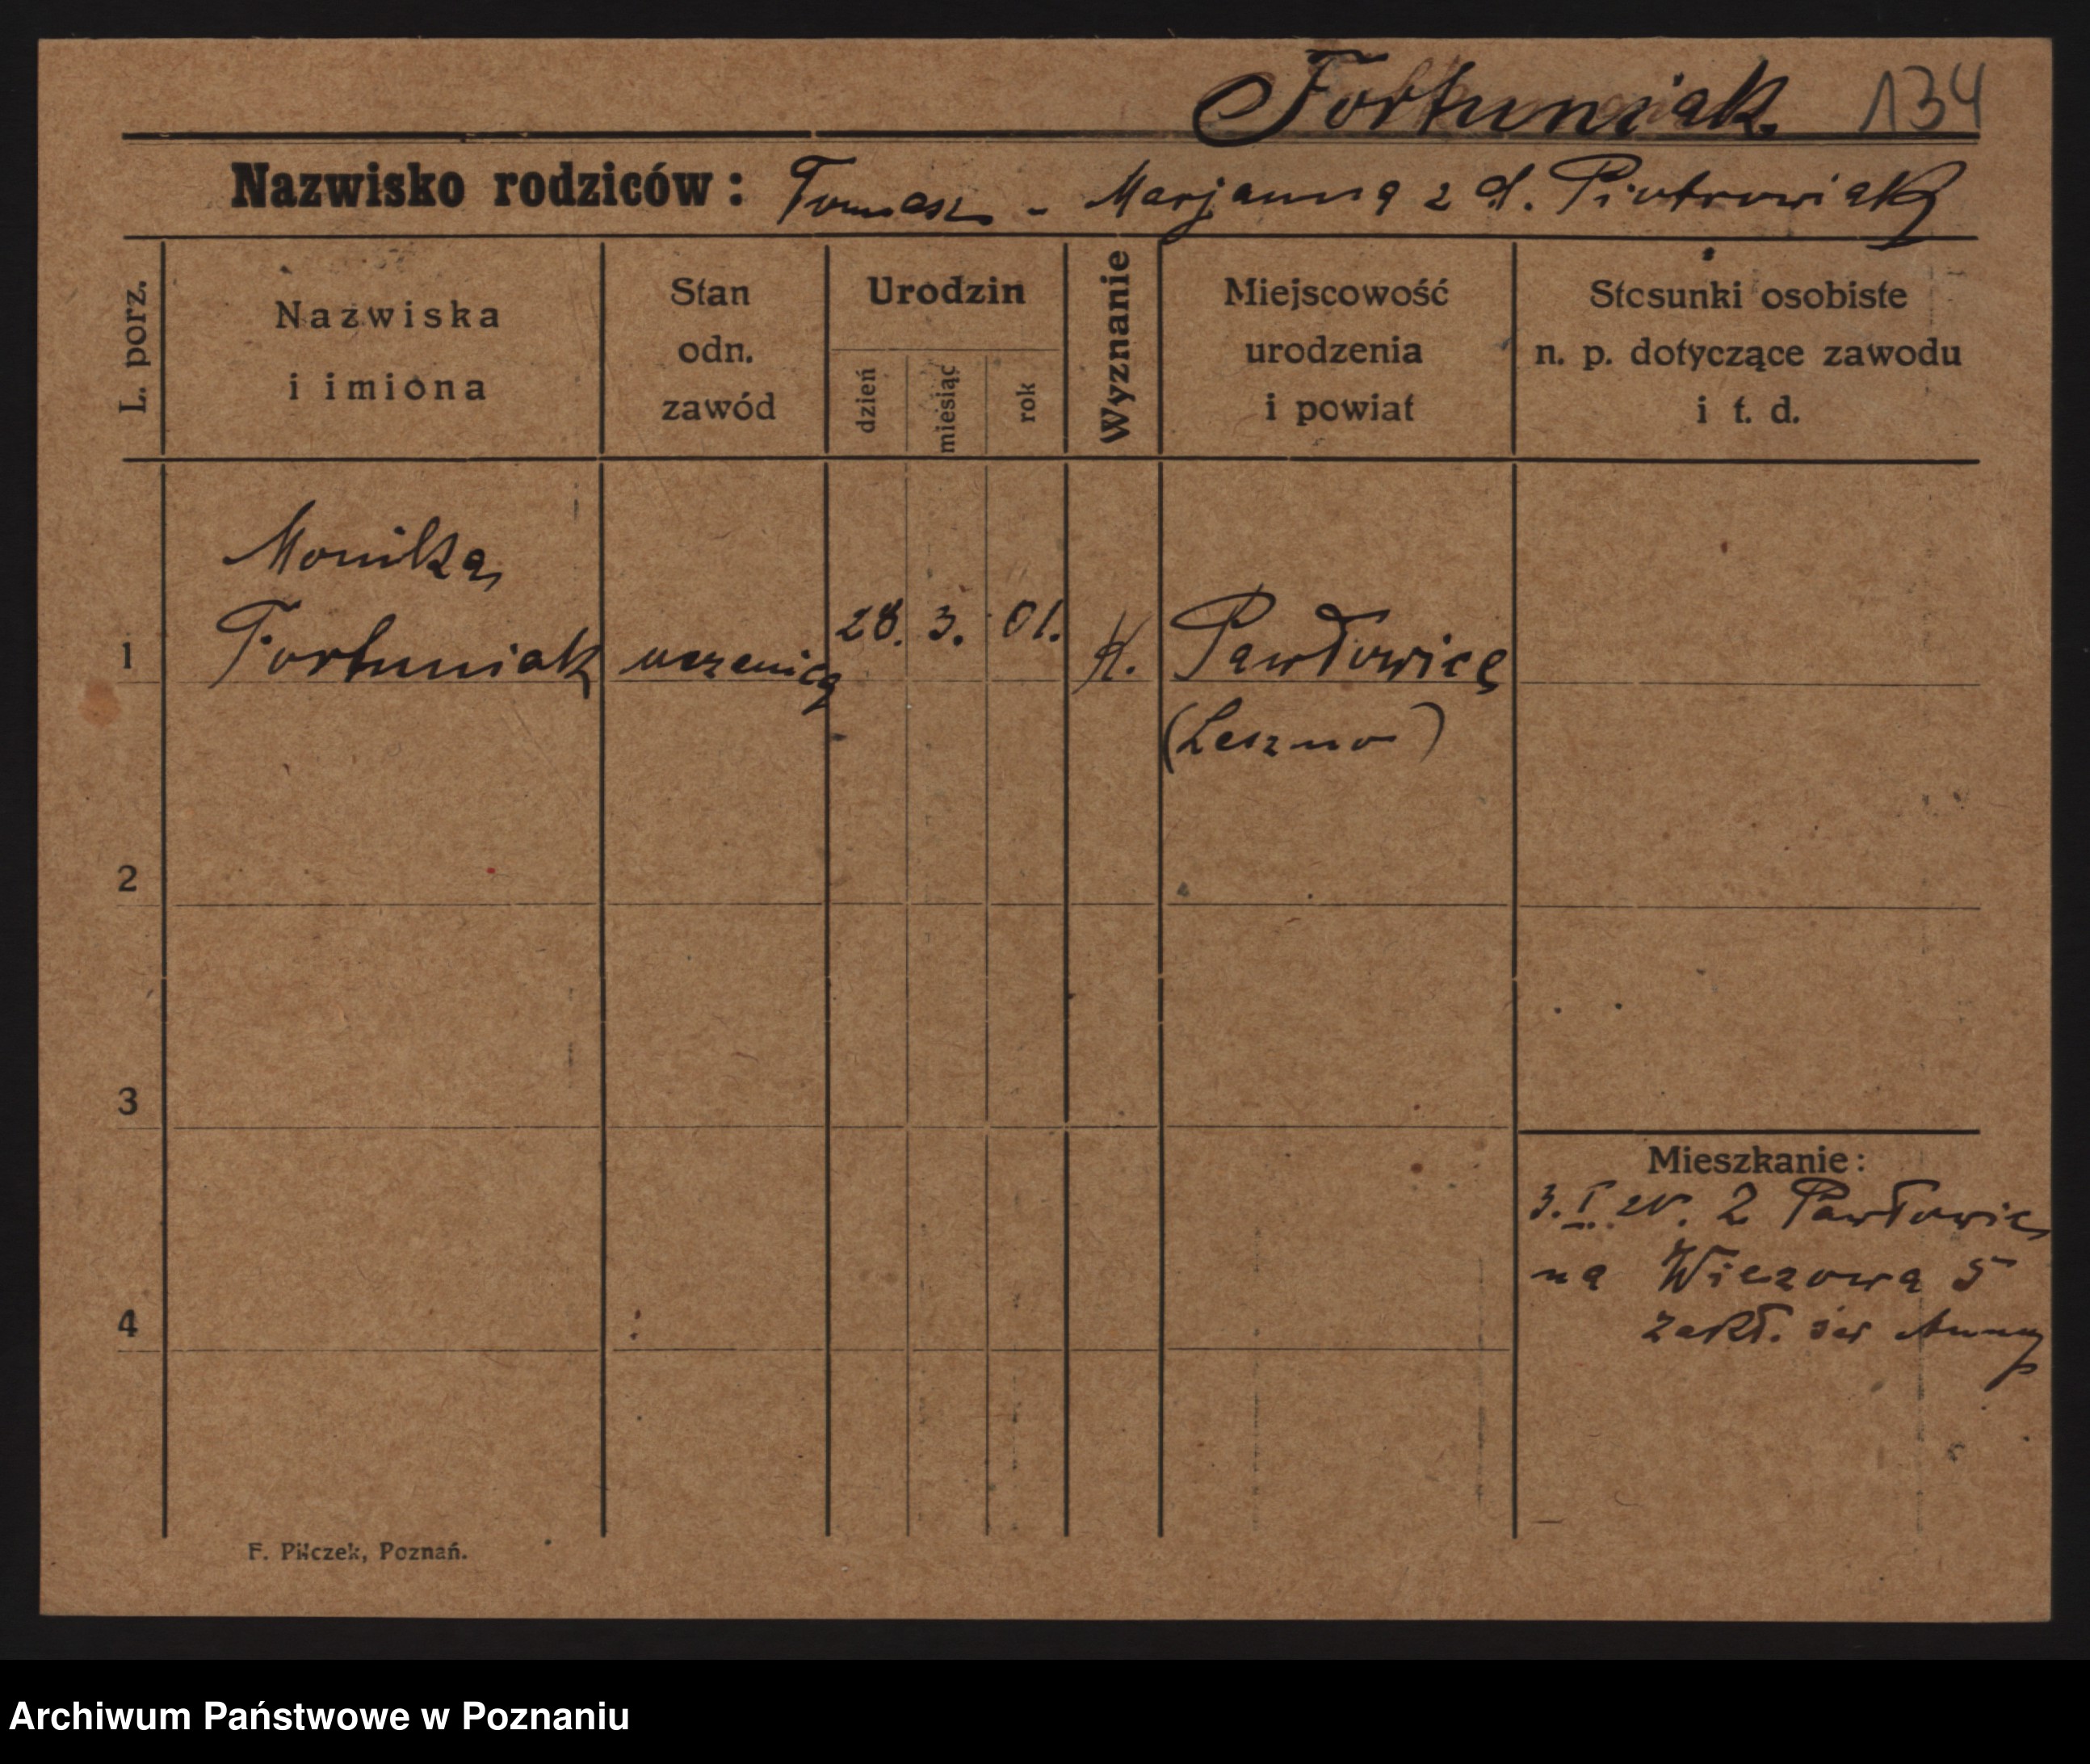 Fortuniak 134
Nazwisko rodziców: Tomasz - Marjanna z d. Piotrowiak
L. porz.
Nazwiska
i imiona
Stan
odn.
zawód
Urodzin
dzień
miesiąc
rok
Wyznanie
Miejscowość
urodzenia
i powiat
Stosunki osobiste
n. p. dotyczące zawodu
i t. d.
Monika
1 Fortuniak uczenica 28. 3. 01. K. Pawłowice
(Leszno)
2
3
4
Mieszkanie:
3. I. 20. z Pawłowic
na Wieżowa 5
zakł. św Anny
F. Pilczek, Poznań.
Archiwum Państwowe w Poznaniu